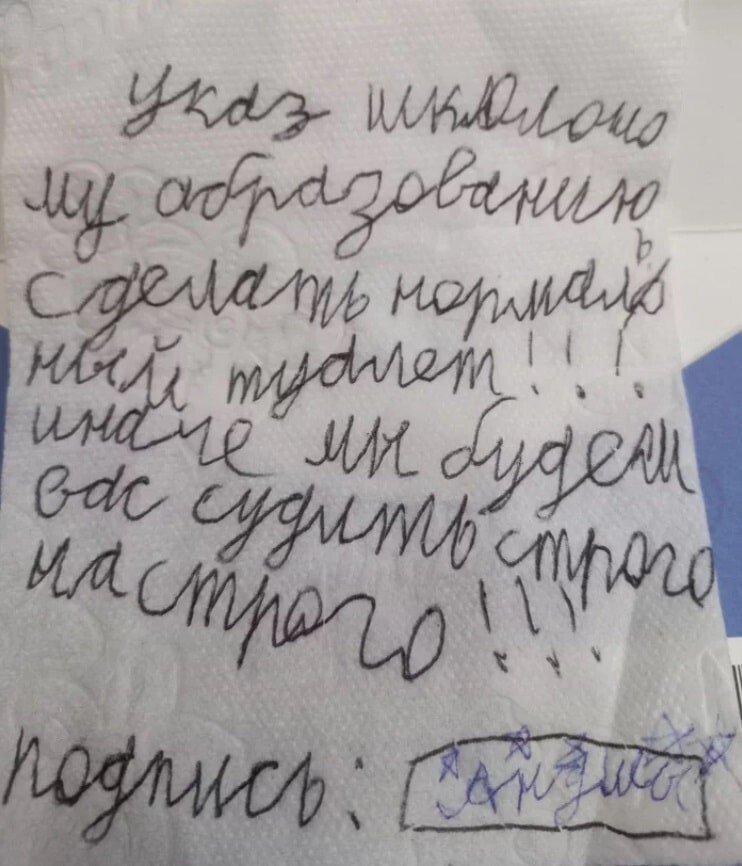 Указ школоно
му абразованию
сделать нормаль
ный туалет!!!
иначе мн будем
вас судить строго
настрого!!!
подпись: